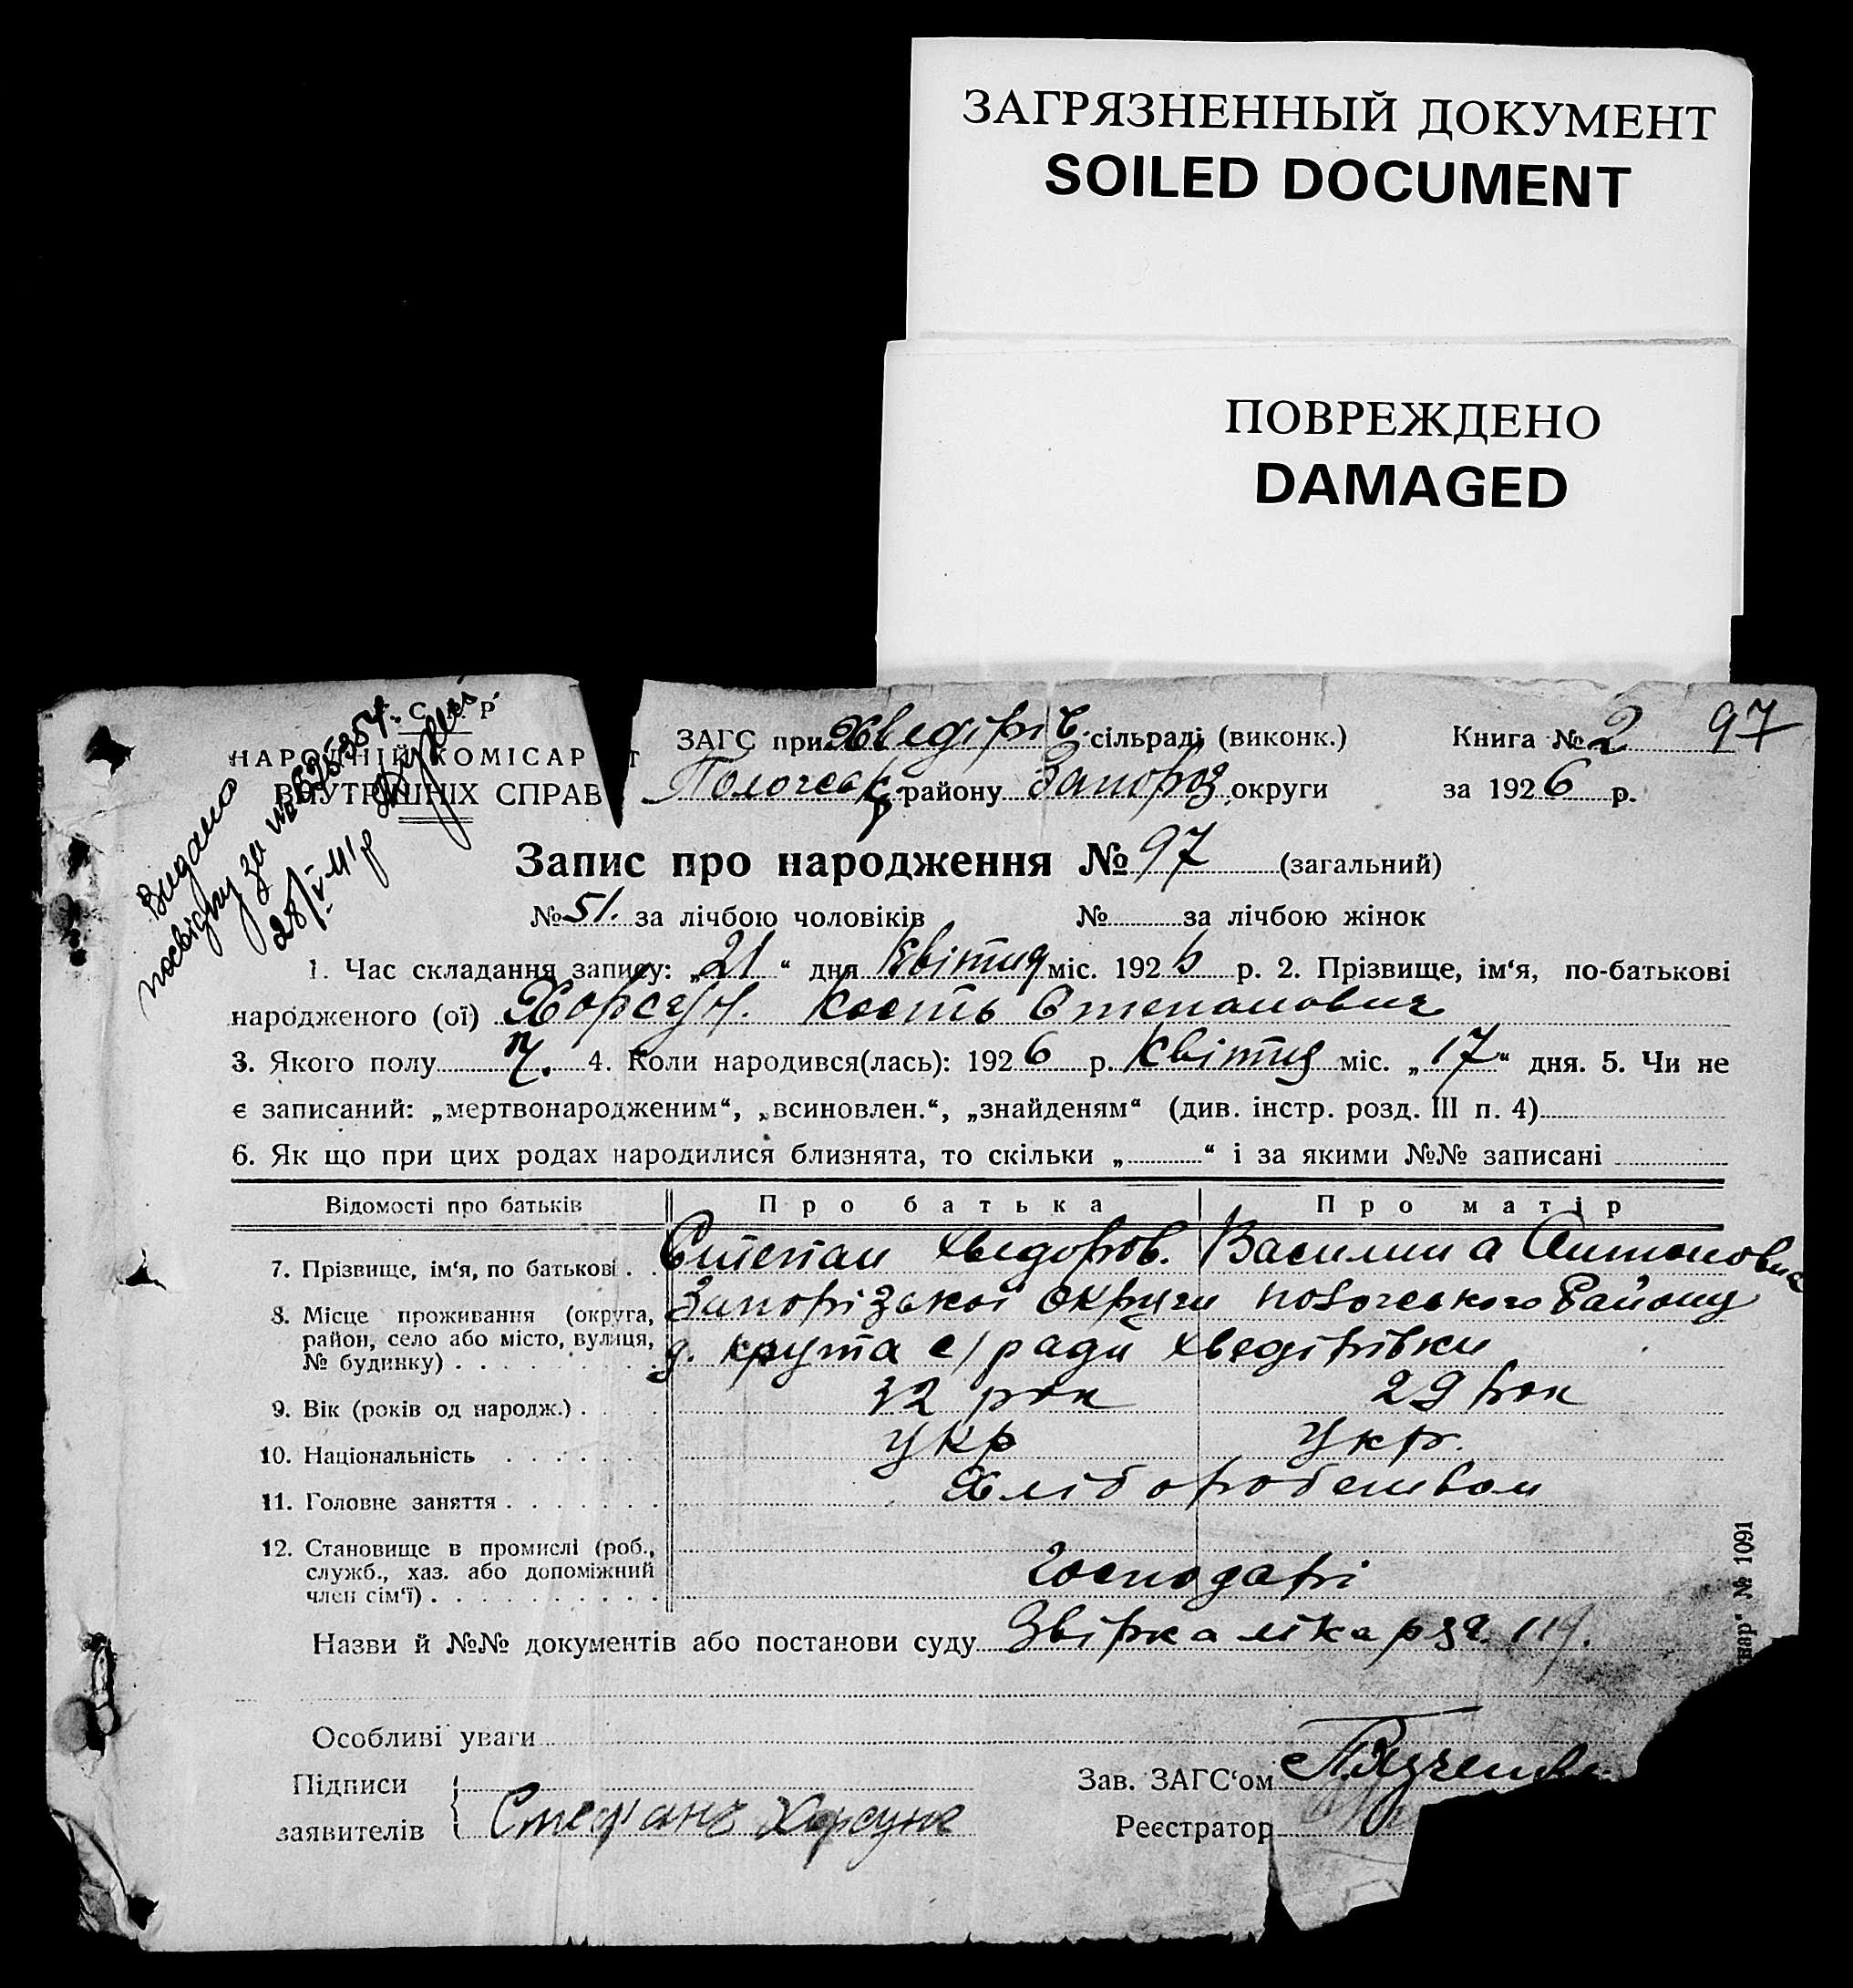 ЗАГРЯЗНЕННЫЙ ДОКУМЕНТ
SOILED DOCUMENT
ПОВРЕЖДЕНО
DAMAGED
НАРОДНІЙ КОМІСАР Т
ВНУТРІШНІХ СПРАВ
Видано
посвідку за №
28/V-41 р
ЗАГС при Хведірів. сільраді (виконк.) Книга № 2 97
Пологськ. району Запоріз. округи за 1926 р.
Запис про народження № 97 (загальний)
№ 51. за лічбою чоловіків № за лічбою жінок
1. Час складання запису: „21“ дня Квітня міс. 1926 р. 2. Прізвище, ім‘я, по-батькові
народженого (ої) Хорсун. Кость Степанович
3. Якого полу ч. 4. Коли народився(лась): 1926 р. Квітня міс. „17“ дня. 5. Чи не
є записаний: „мертвонародженим“, „всиновлен.“, „знайденям“ (див. інстр. розд. III п. 4)
6. Як що при цих родах народилися близнята, то скільки „ “ і за якими №№ записані
Відомості про батьків Про батька Про матір
7. Прізвище, ім‘я, по батькові Степан Хведоров. Василина Антоновна
8. Місце проживання (округа, Запорізької округи Пологського Району
район, село або місто, вулиця, д. Крута с/ради Хведірівки
№ будинку)
9. Вік (років од народж.) 32 рок 29 рок
10. Національність Укр Укр.
11. Головне заняття Хліборобством
12. Становище в промислі (роб.,
служб., хаз. або допоміжний Господарі
член сім‘ї)
Назви й №№ документів або постанови суду Звірка лікаря
Особливі уваги
Підписи Зав. ЗАГС‘ом
заявителів Стефанъ Хорсунъ Реєстратор
нар“ № 1091